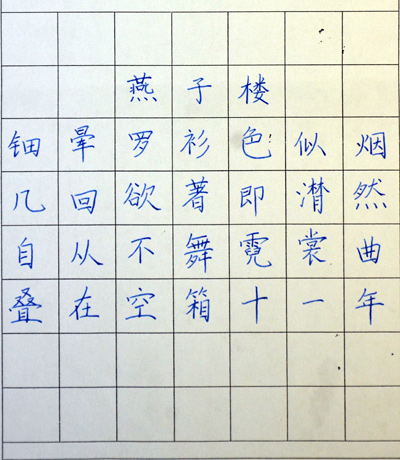 燕子楼
钿晕罗衫色似烟
几回欲著即潸然
自从不舞霓裳曲
叠在空箱十一年